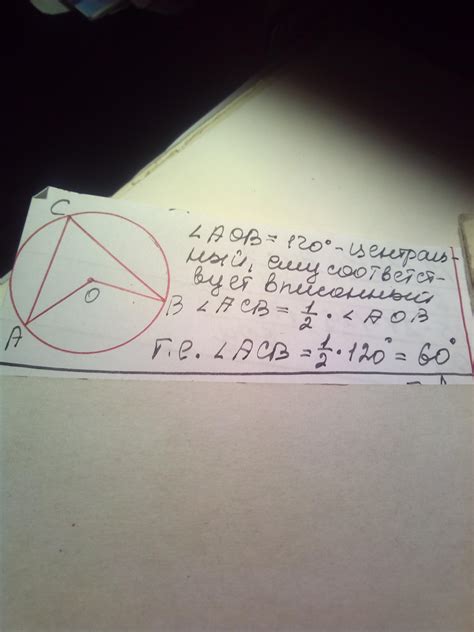 C
O
A
B
∠AOB = 120° - централь-
ный, ему соответст-
вует вписанный
∠ACB = 1/2 · ∠AOB
т.е. ∠ACB = 1/2 · 120° = 60°